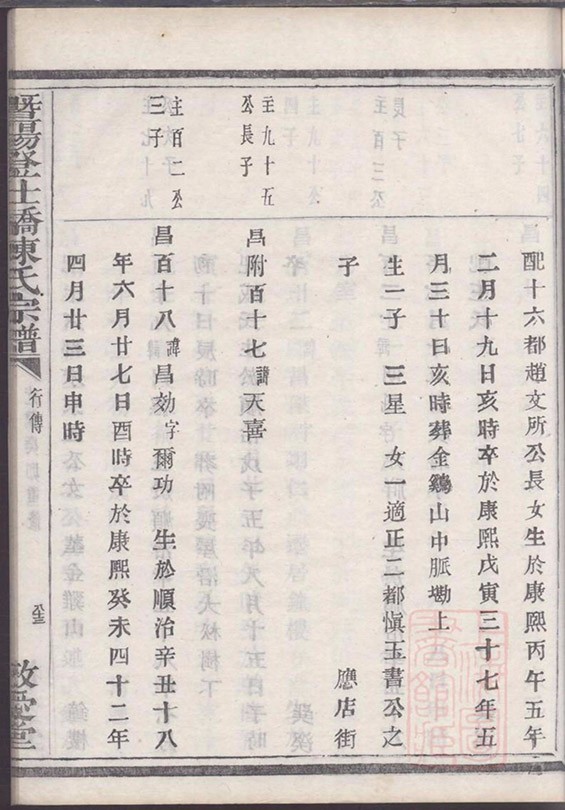 配十六都趙文所公長女生於康熙丙午五年
二月十九日亥時卒於康熙戊寅三十七年五
月三十日亥時葬金鷄山中脈塆上
生一子 三星 女一適正二都愼玉書公之
子 應店街
主九十五
公長子
昌附百十七諱天喜
主百二公
三子
昌百十八諱昌効字爾功 生於順治辛丑十八
年六月廿七日酉時卒於康熙癸未四十二年
四月廿三日申時
暨陽登仕橋陳氏宗譜
行傳
敬愛堂